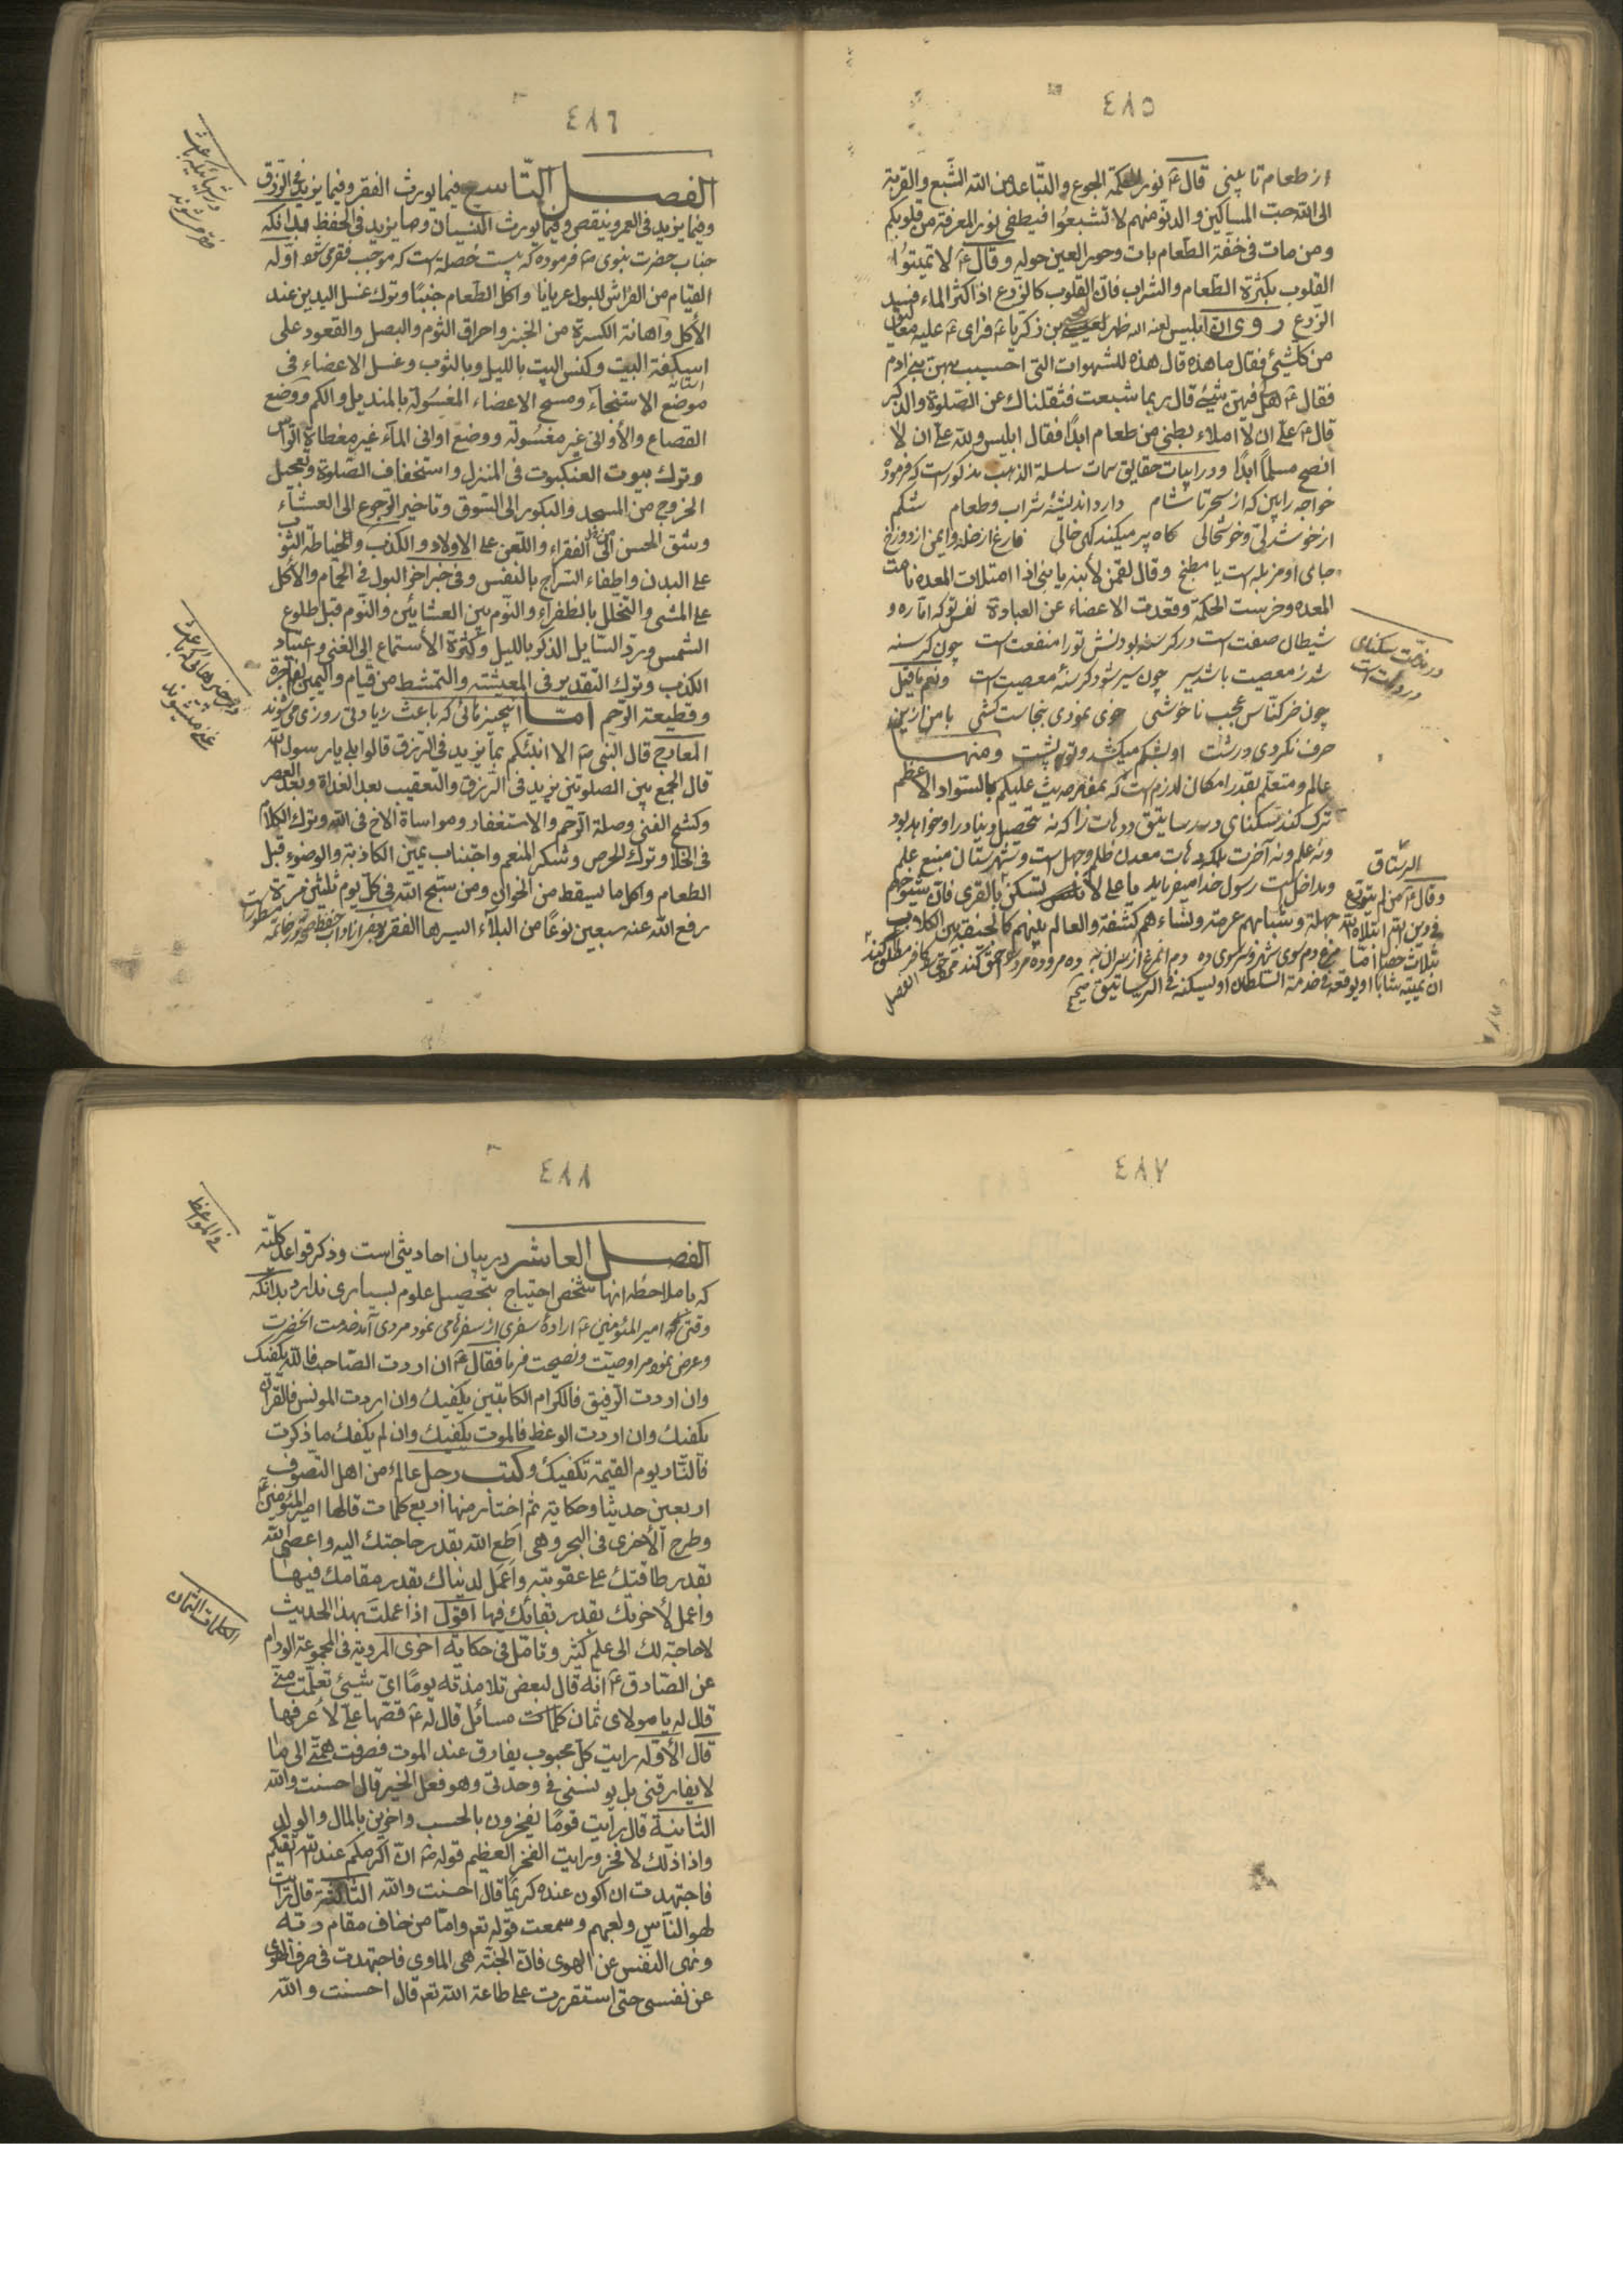 ٤٨٥
از طعام تا پینی قال ع نور الحکمة الجوع والتباعد من الله الشبع والقربة
الی الله حبّ المساکین والدنو منهم لا تشبعوا فیطفی نور المعرفة من قلوبکم
ومن مات فی خفة الطعام بات وحور العین حوله وقال ع لا تمیتوا
القلوب بکثرة الطعام والشراب فان القلوب کالزرع اذا کثر الماء فسد
الزرع روی ان ابلیس لعنه الله ظهر لیحیی بن زکریا ع فرای ع علیه معالیق
من کلشیئ فقال ما هذه قال هذه الشهوات التی اصیب بهن بنی ادم
فقال ع هل فیهن شیئ قال ربما شبعت فثقلناک عن الصلوة والذکر
قال ع علیّ ان لا املاء بطنی من طعام ابدًا فقال ابلیس ولله علیّ ان لا
انصح مسلمًا ابدًا ودر ابیات حقایق سمات سلسلة الذهب مذکور است که فرموده
خواجه را بین که از سحر تا شام دارد اندیشهٔ شراب وطعام شکم
از خوشدلی وخوشحالی گاه پر میکند گهی خالی فارغ از خلد وایمن از دوزخ
جای او مزبله است یا مطبخ وقال لقمن لابنه یا بنی اذا امتلات المعدة نامت
المعده وخرست الحکمة وقعدت الاعضاء عن العبادة نفس تو که اماره و
شیطان صفت است در گرسنه بودنش تو را منفعت است چون گرسنه
شد ز معصیت باشد سیر چون سیر شود گرسنهٔ معصیت است ونعم ما قیل
چون خر کناس عجب ناخوشی خوی نمودی بنجاست کشی با من ازین
حرف نگردی درشت او بشکم میکشد وتو بپشت ومنها
عالم ومتعلم بقدر امکان لازم است که بمفاد حدیث علیکم بالسواد الاعظم
ترک کند سکنای در رساتیق ودهات را که نه تحصیل دنیا در او خواهد بود
ونه علم ونه آخرت بلکه دهات معدن ظلم وجهل است وشهرستان منبع علم
ومداخل است رسول خدا میفرماید یا علی لا تسکن بالقری فان شیوخهم
جهلة وشبابهم عرمة ونساءهم کشفة والعالم بینهم کالجیفة بین الکلاب
در مذمت سکنای
در دهات است
الرستاق
وقال ع من لم یتورع
فی دین الله ابتلاه الله
بثلاث خصال
ان یمیته شابا او یوقعه فی خدمة السلطان او یسکنه فی الرساتیق
الفصل
٤٨٦
الفصل التاسع فیما یورث الفقر وفیما یزید فی الرزق
وفیما یزید فی العمر وینقص وفیما یورث النسیان وما یزید فی الحفظ بدانکه
جناب حضرت نبوی ص فرموده که بیست خصلة است که موجب فقر می شود اوله
القیام من الفراش للبول عریانا واکل الطعام جنبًا وترک غسل الیدین عند
الأکل واهانة الکسرة من الخبز واحراق الثوم والبصل والقعود علی
اسکفة البیت وکنس البیت باللیل وبالثوب وغسل الاعضاء فی
موضع الاستنجاء ومسح الاعضاء المغسولة بالمندیل والکم ووضع
القصاع والأوانی غیر مغسولة ووضع اوانی الماء غیر مغطاة الراس
وترک بیوت العنکبوت فی المنزل واستخفاف الصلوة وتعجیل
الخروج من المسجد والبکور الی السوق وتاخیر الرجوع الی العشاء
وشق الخبز الی الفقراء واللعن علی الاولاد والکذب والخیاطة الثوب
علی البدن واطفاء السراج بالنفس وفی خبر اخر البول فی الحمام والأکل
علی المشی والتخلل بالطفراء والنوم بین العشائین والنوم قبل طلوع
الشمس ورد السایل الذکر باللیل وکثرة الأستماع الی الغنی واعتیاد
الکذب وترک التقدیر فی المعیشته والتمشط من قیام والیمین الفاجرة
وقطیعة الرحم امّا آنچیزهائی که باعث زیادتی روزی می شوند
المعارج قال النبی ص الا انبئکم بما یزید فی الرزق قالوا بلی یا رسول الله
قال الجمع بین الصلوتین یزید فی الرزق والتعقیب بعد الغداة وبعد العصر
وکشح الفنی وصلة الرحم والاستغفار ومواساة الاخ فی الله وترک الکلام
فی الخلا وترک الحرص وشکر المنعم واجتناب یمین الکاذبة والوضوء قبل
الطعام واکل ما یسقط من الخوان ومن سبح الله فی کل یوم ثلثین مرة
رفع الله عنه سبعین نوعًا من البلاء ایسرها الفقر
٤٨٧
٤٨٨
فی المواعظ
الفصل العاشر در بیان احادیثی است وذکر قواعد کلیّه
که با ملاحظه انها شخص احتیاج بتحصیل علوم بسیاری ندارد بدانکه
وقتی که امیر المؤمنین ع ارادهٔ سفری از سفرها می نمود مردی آمد خدمت انحضرت
وعرض نمود مرا وصیت ونصیحت فرما فقال ع ان اردت الصاحب فالله یکفیک
وان اردت الرفیق فالکرام الکاتبین یکفیک وان اردت المونس فالقرآن
یکفیک وان اردت الوعظ فالموت یکفیک وان لم یکفک ما ذکرت
فالنار یوم القیمة تکفیک وکتب رجل عالم من اهل التصوف
اربعین حدیثا وحکایة ثم اختار منها اربع کلمات قالها امیر المؤمنین ع
وطرح الأخری فی البحر وهی اطع الله بقدر حاجتک الیه واعص الله
بقدر طاقتک علی عقوبته واعمل لدنیاک بقدر مقامک فیها
واعمل لأخرتک بقدر بقائک فیها اقول اذا عملت بهذا الحدیث
لا حاجة لک الی علم کثیر وتامل فی حکایة اخری المرویة فی المجموعة الورام
عن الصادق ع انه قال لبعض تلامذته یومًا ای شیئ تعلمت منی
قال له یا مولای ثمان کلمات مسائل قال له ع قصها علیّ لأعرفها
قال الأوله رایت کل محبوب یفارق عند الموت فصرفت همتی الی ما
لا یفارقنی بل یونسنی فی وحدتی وهو فعل الخیر قال احسنت والله
الثانیة قال رایت قومًا یفخرون بالحسب واخرین بالمال والولد
واذا ذلک لا فخر ورایت الفخر العظیم قوله تع ان اکرمکم عند الله اتقیکم
فاجتهدت ان اکون عنده کریمًا قال احسنت والله الثالثة قال رایت
لهو الناس ولعبهم وسمعت قوله تع واما من خاف مقام ربه
ونهی النفس عن الهوی فان الجنة هی الماوی فاجتهدت فی صرف الهوی
عن نفسی حتی استقررت علی طاعة الله تع قال احسنت والله
الکلمات الثمان